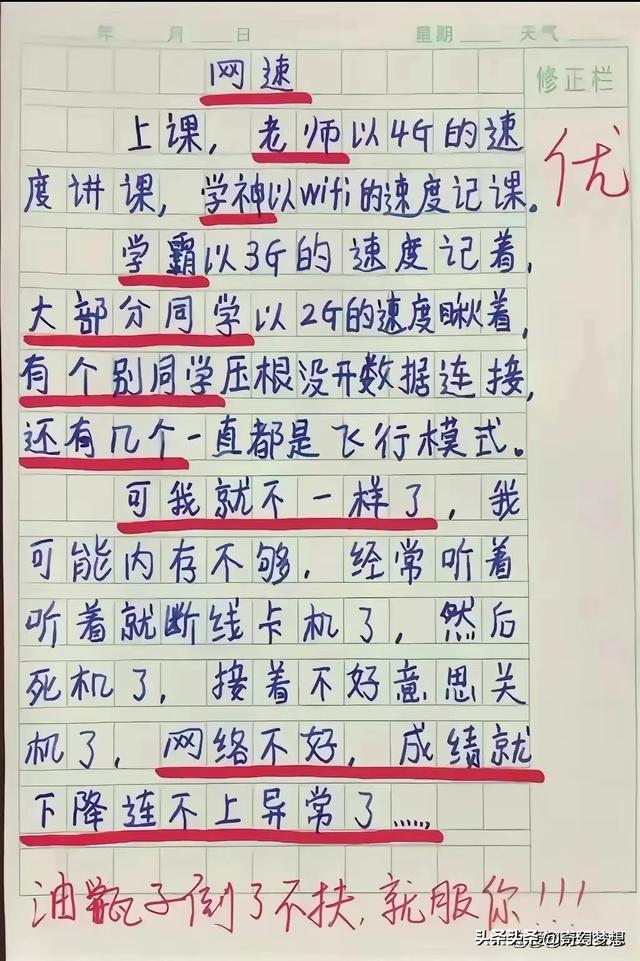 年 月 日 星期 天气
网速
修正栏
上课，老师以4G的速
优
度讲课，学神以wifi的速度记课。
学霸以3G的速度记着，
大部分同学以2G的速度瞅着，
有个别同学压根没开数据连接，
还有几个一直都是飞行模式。
可我就不一样了，我
可能内存不够．经常听着
听着就断线卡机了，然后
死机了，接着不好意思关
机了，网络不好，成绩就
下降连不上异常了……
油瓶子倒了不扶，就服你！！！
头条@奇幻梦想